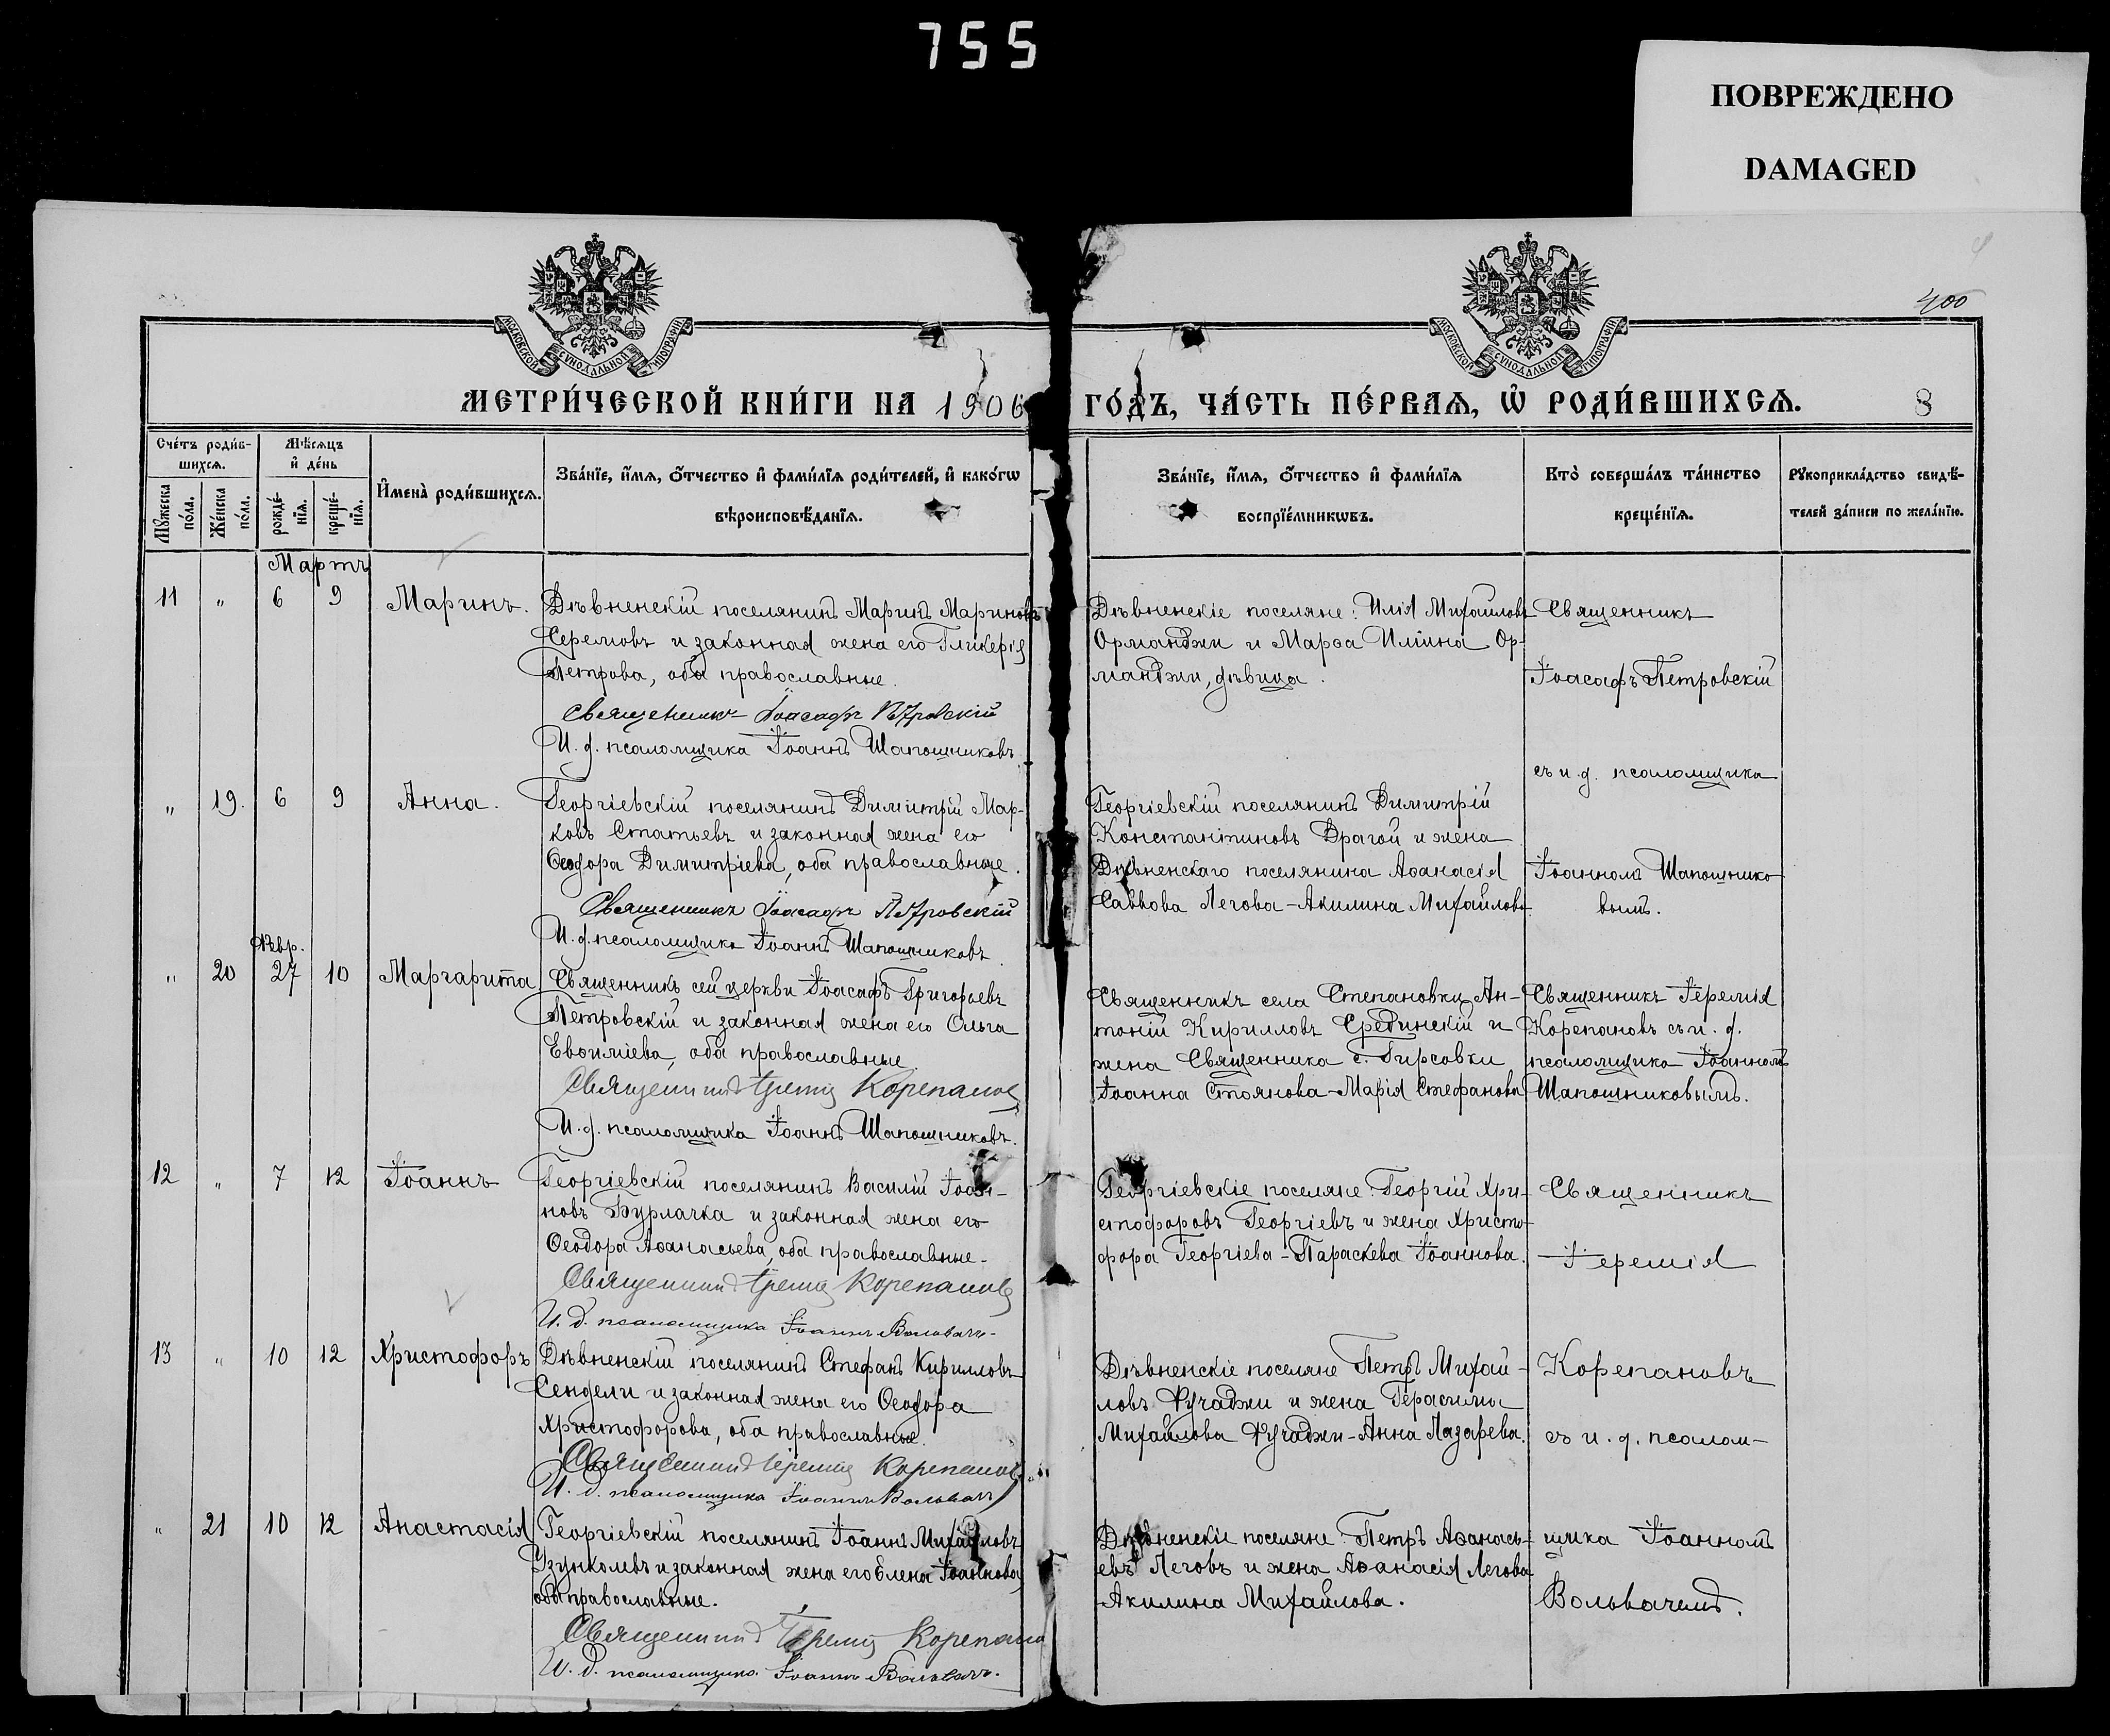 755
ПОВРЕЖДЕНО
DAMAGED
400
МОСКОВСКОЙ СѴНОДАЛЬНОЙ ТИПОГРАФІИ
МОСКОВСКОЙ СѴНОДАЛЬНОЙ ТИПОГРАФІИ
МЕТРИ́ЧЕСКОЙ КНИ́ГИ НА 1906 ГО́ДЪ, ЧА́СТЬ ПЕ́РВАѦ, Ѡ҆ РОДИ́ВШИХСѦ. 8
Сче́тъ роди́в-
шихсѧ.
Мѣ́сѧцъ
и҆ де́нь
Мꙋ́жеска по́ла.
Же́нска по́ла.
рожде́-
нїѧ.
креще́-
нїѧ.
И҆мена̀ роди́вшихсѧ.
Зва́нїе, и҆́мѧ, ѻ҆́тчество и҆ фами́лїѧ роди́телей, и҆ како́гѡ
вѣроисповѣ́данїѧ.
Зва́нїе, и҆́мѧ, ѻ҆́тчество и҆ фами́лїѧ
воспрїе́мникѡвъ.
Кто̀ соверша́лъ та́инство
креще́нїѧ.
Рꙋкоприкла́дство свидѣ́-
телей за́писи по жела́нїю.
Мартъ
11 " 6 9 Маринъ.
Дѣвненскій поселянинъ Маринъ Мариновъ
и законная жена его Гликерія
Петрова, оба православные.
Священникъ Іоасафъ Петровскій
И. д. псаломщика Іоаннъ Шапошниковъ.
Дѣвненскіе поселяне: Илія Михаиловъ
Орманджи и Марѳа Иліина Ор-
манджи, дѣвица.
Священникъ
Іоасафъ Петровскій
съ и. д. псаломщика
Іоанномъ Шапошнико-
вымъ.
" 19. 6 9 Анна.
Георгіевскій поселянинъ Димитрій Мар-
ковъ Статьевъ и законная жена его
Ѳеодора Димитріева, оба православные.
Священникъ Іоасафъ Петровскій
И. д. псаломщика Іоаннъ Шапошниковъ.
Георгіевскій поселянинъ Димитрій
Константиновъ Драгой и жена
Дѣвненскаго поселянина Аѳанасія
Саввова Легова - Акилина Михайлова.
Февр.
" 20 27 10 Маргарита
Священникъ сей церкви Іоасафъ Григорьевъ
Петровскій и законная жена его Ольга
Евѳиміева, оба православные
Священникъ Іеремія Корепановъ
И. д. псаломщика Іоаннъ Шапошниковъ.
Священникъ села Степановки Ан-
тоній Кирилловъ Срединскій и
жена Священника с. Гирсовки
Іоанна Стоянова - Марія Стефанова
Священникъ Іеремія
Корепановъ съ и. д.
псаломщика Іоанномъ
Шапошниковымъ.
12 " 7 12 Іоаннъ
Георгіевскій поселянинъ Василій Іоан-
новъ Бурлачка и законная жена его
Ѳеодора Аѳанасьева, оба православные.
Священникъ Іеремія Корепановъ
И. д. псаломщика Іоаннъ Вольвачъ.
Георгіевскіе поселяне: Георгій Хри-
стофоровъ Георгіевъ и жена Христо-
фора Георгіева - Параскева Іоаннова.
Священникъ
Іеремія
13 " 10 12 Христофоръ
Дѣвненскій поселянинъ Стефанъ Кирилловъ
Сендели и законная жена его Ѳеодора
Христофорова, оба православные.
Священникъ Іеремія Корепановъ
И. д. псаломщика Іоаннъ Вольвачъ
Дѣвненскіе поселяне Петръ Михай-
ловъ Фучаджи и жена Герасима
Михайлова Фучаджи - Анна Лазарева.
Корепановъ
съ и. д. псалом-
" 21 10 12 Анастасія
Георгіевскій поселянинъ Іоаннъ Михайловъ
Узунколевъ и законная жена его Елена Іоаннова,
оба православные.
Священникъ Іеремія Корепановъ
И. д. псаломщика Іоаннъ Вольвачъ.
Дѣвненскіе поселяне: Петръ Аѳанась-
евъ Леговъ и жена Аѳанасія Легова
Акилина Михайлова.
щика Іоанномъ
Вольвачемъ.